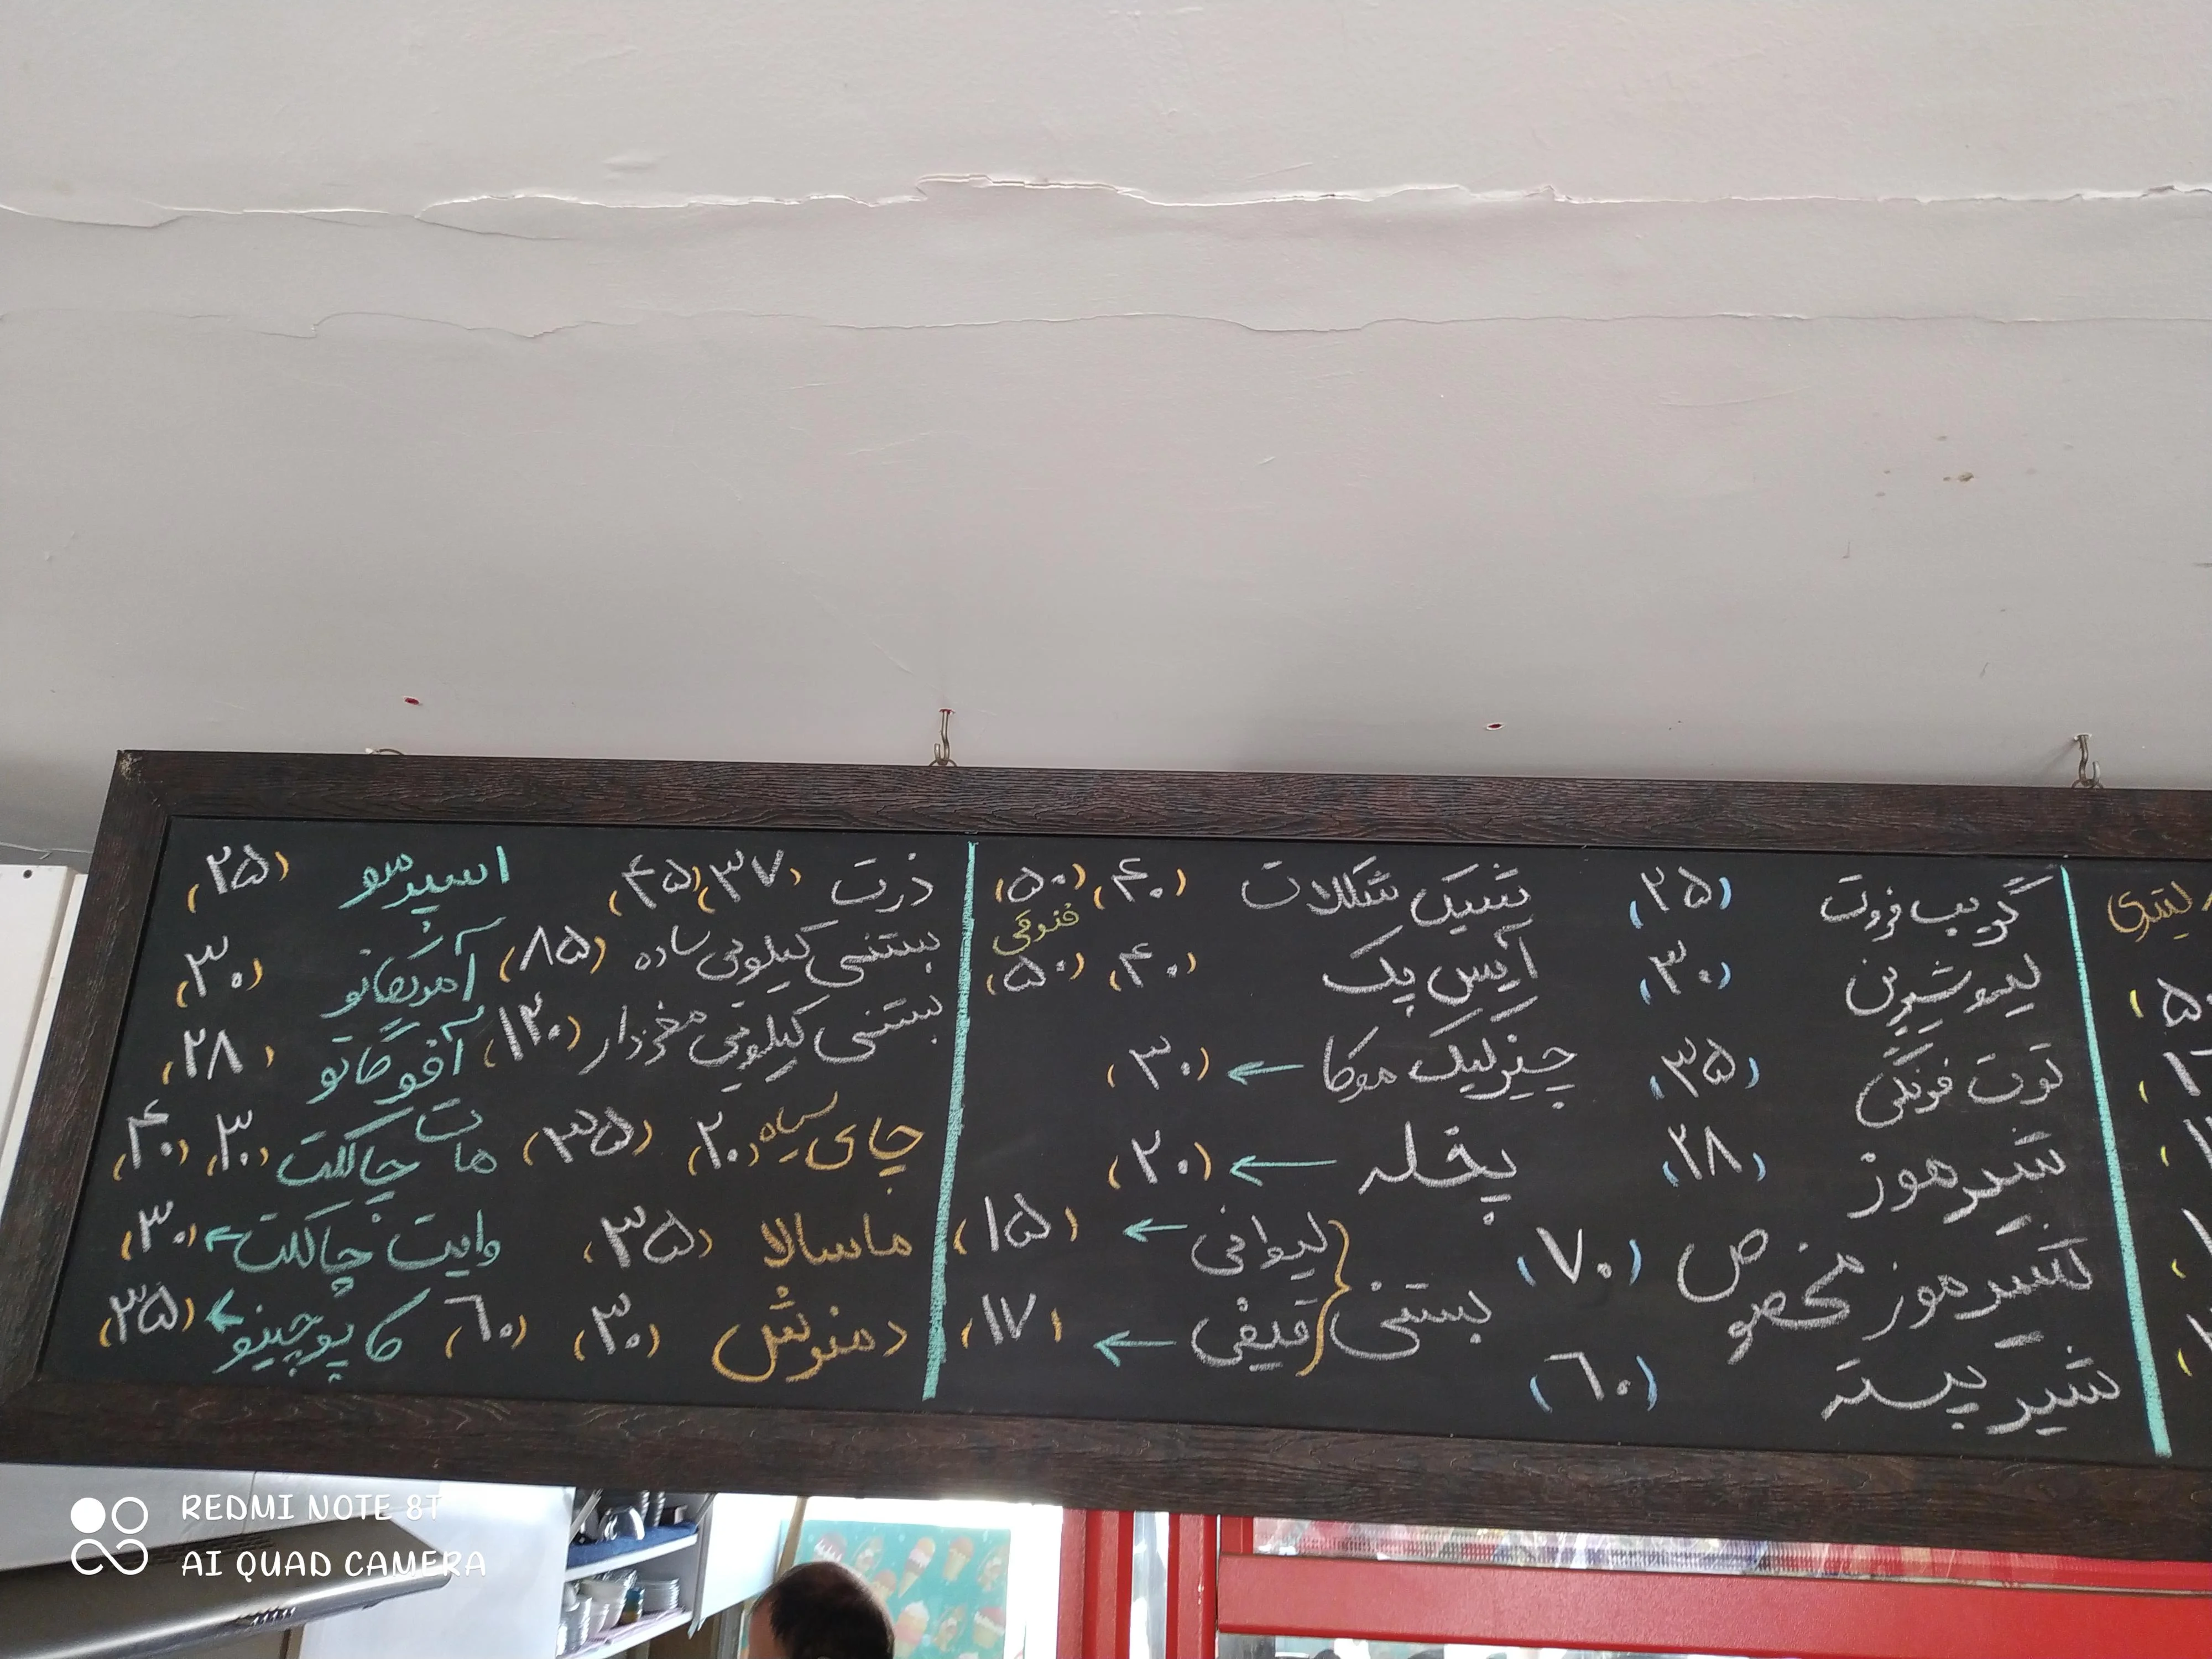 گریپ فروت (۲۵)
لیمو شیرین (۳۰)
توت فرنگی (۳۵)
شیر موز (۲۸)
شیر موز مخصوص (۷۰)
شیر پسته (۶۰)
شیک شکلات (۴۰) (۵۰)
آیس پک (۴۰) (۵۰)
چیزکیک موکا ← (۳۰)
یخله ← (۲۰)
بستنی { لیوانی ← (۱۵)
قیفی ← (۱۷)
ذرت (۳۷) (۴۵)
بستنی کیلویی ساده (۸۵)
بستنی کیلویی مغزدار (۱۲۰)
چای سیاه (۲۰) (۳۵)
ماسالا (۳۵)
دمنوش (۳۰) (۶۰)
اسپرسو (۲۵)
آمریکانو (۳۰)
آفوگاتو (۲۸)
هات چاکلت (۳۰) (۴۰)
وایت چاکلت ← (۳۰)
کاپوچینو ← (۳۵)
REDMI NOTE 8T
AI QUAD CAMERA